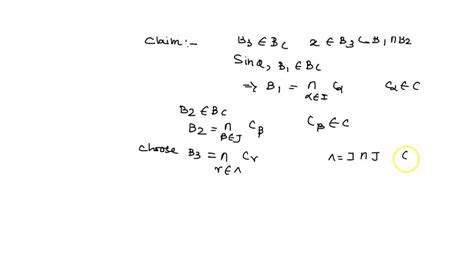 Claim:- B₃ ∈ B_C x ∈ B₃ ⊂ B₁ ∩ B₂
Since, B₁ ∈ B_C
⇒ B₁ = ∩ Cα Cα ∈ C
α∈I
B₂ ∈ B_C
B₂ = ∩ C_β C_β ∈ C
β∈J
Choose B₃ = ∩ C_r Λ = I ∩ J C
r∈Λ